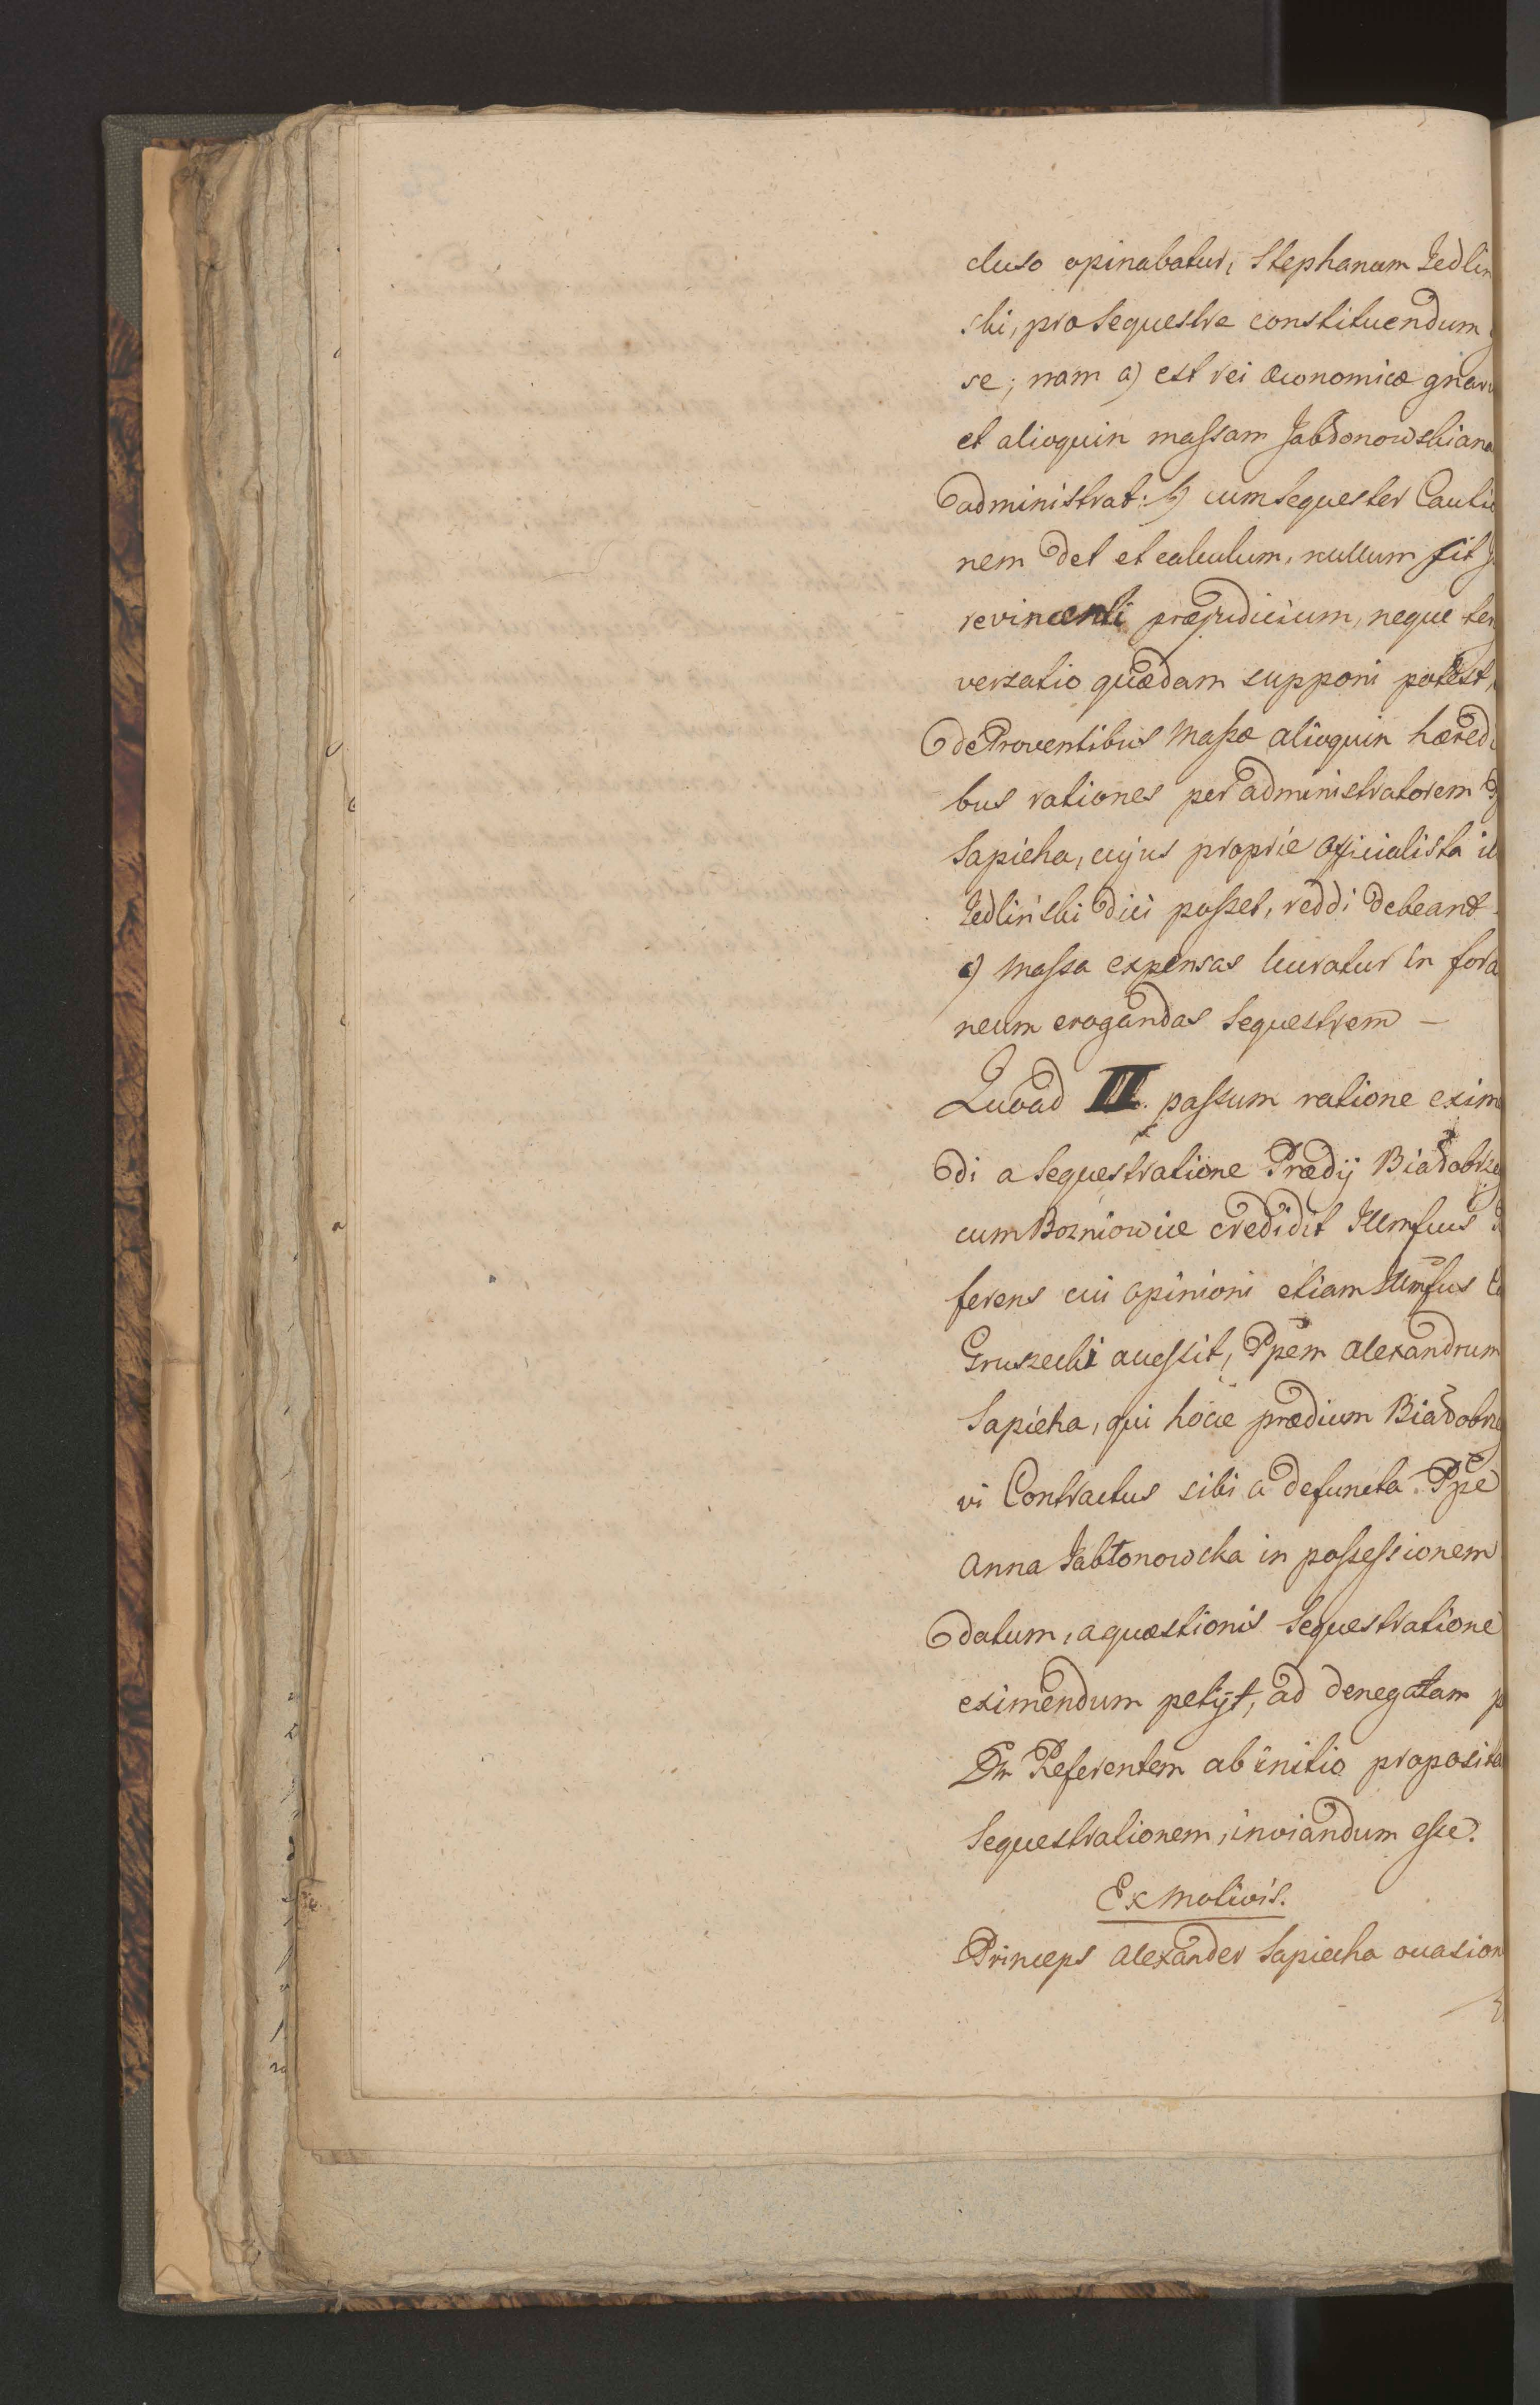 cluso opinabatur, Stephanum Jedlin
ski, pro Sequestre constituendum
se; nam a) est rei œconomicæ gnaru
et alioquin maſsam Jabłonowskiana
administrat: b) cum Sequester Cautio
nem det et calculum, nullum fit
revincenti præjudicium, neque ter
versatio quædam supponi potest,
de Proventibus Maſsæ alioquin hæredi
bus rationes per administratorem
Sapieha, cujus proprie officialista
Jedliński dici poſset, reddi debeant
c) Maſsa expensas lucratur in fora
neum erogandas Sequestrem —
Quoad III. paſsum ratione exim
di a Sequestratione Prædij Białobrze
cum Bozniowice credidit Illmſsus
ferens cui opinioni etiam Illmſsus
Gruszecki acceſsit, Ppem Alexandrum
Sapieha, qui hocce prædium Białobrze
vi Contractus sibi a defuncta Ppe
Anna Jabłonowska in poſseſsionem
datum, a quæstionis Sequestratione
eximendum petijt, ad denegatam
Dm Referentem ab initio proposita
Sequestrationem, inviandum eſse.
Ex Motivis.
Princeps Alexander Sapiecha occasion